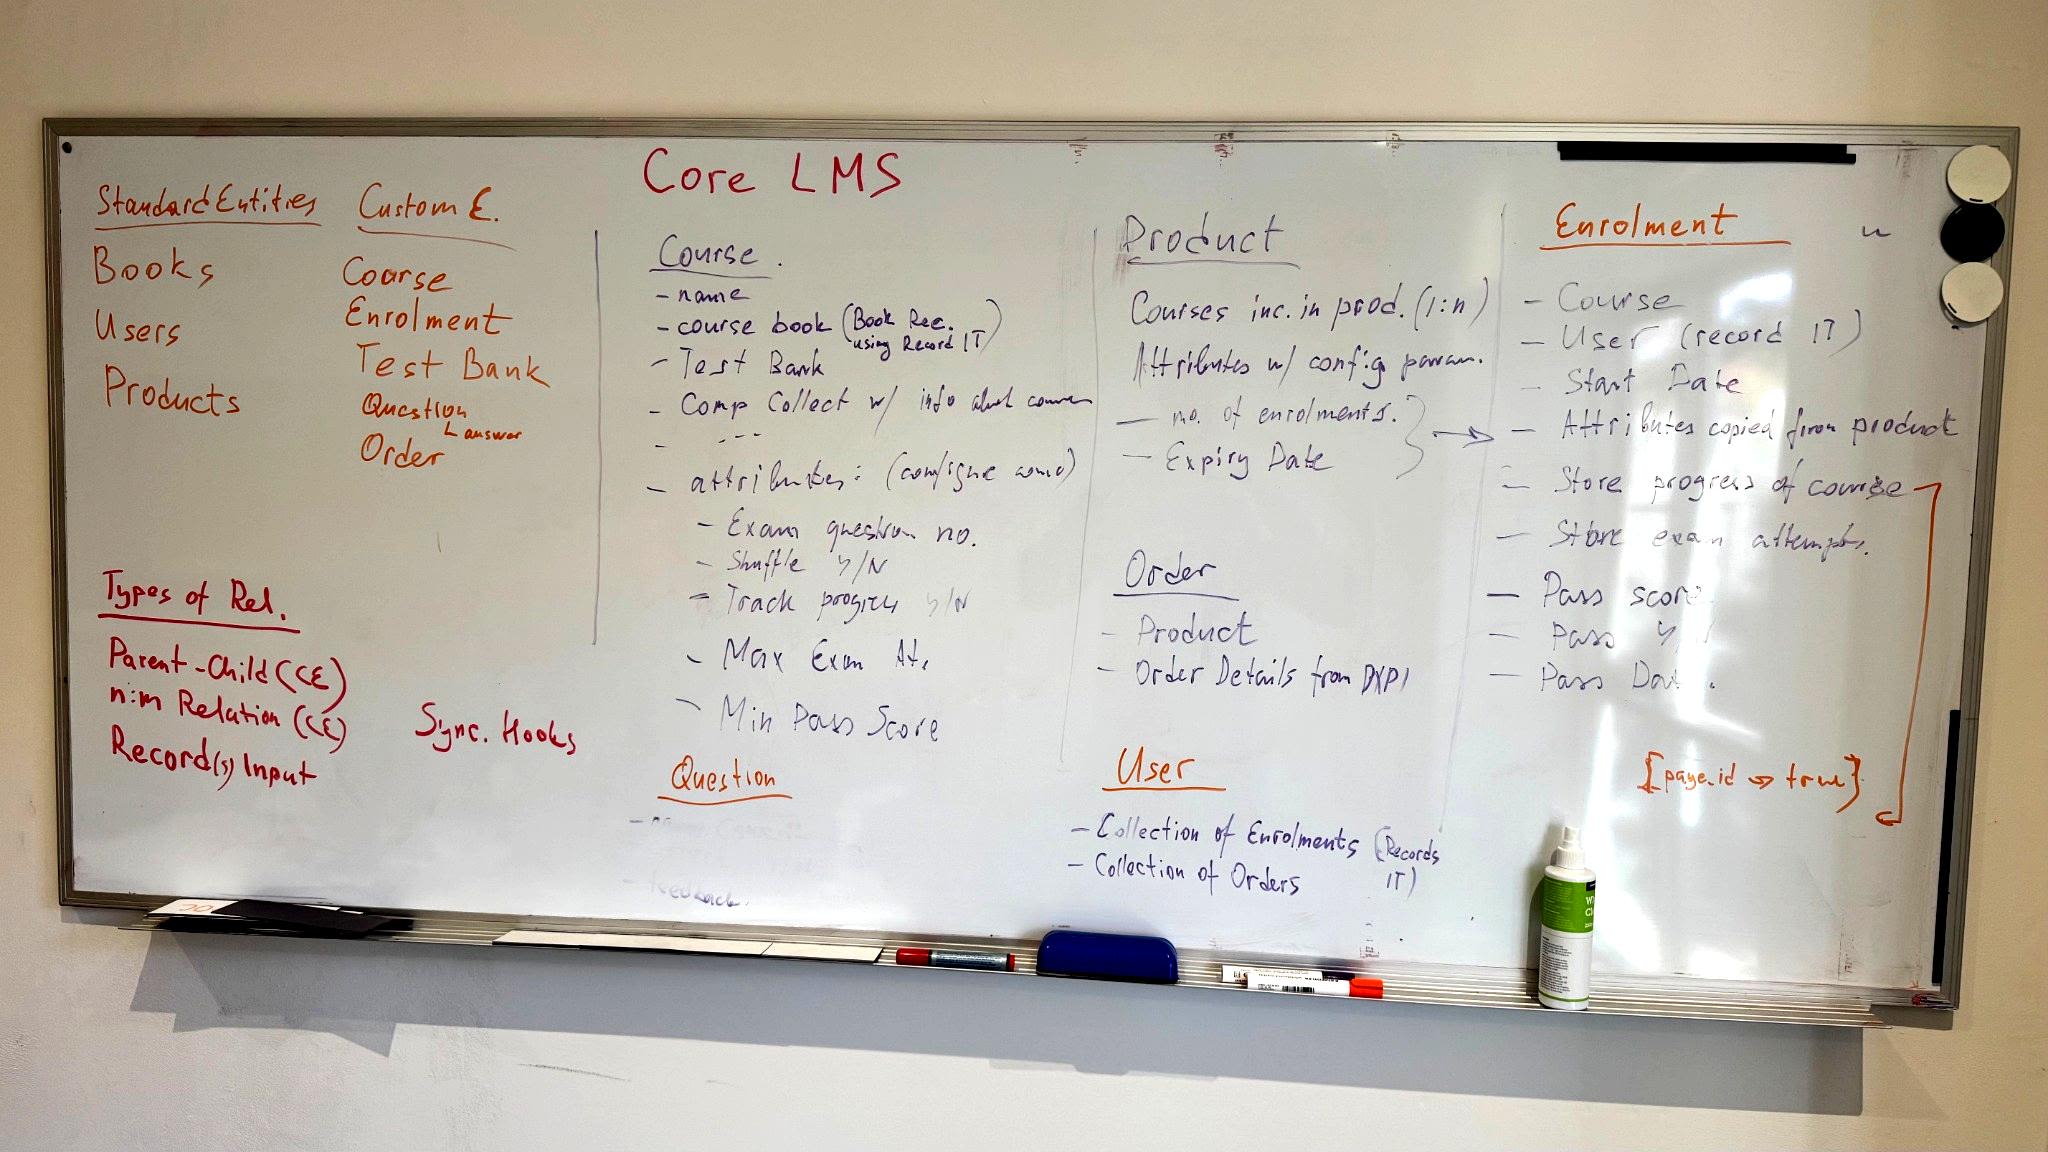 Core LMS
Standard Entities
Books
Users
Products
Custom E.
Course
Enrolment
Test Bank
Question
answer
Order
Types of Rel.
Parent-Child (CE)
n:m Relation (CE)
Record(s) Input
Sync. Hooks
Course.
- name
- course book (Book Rec.
using Record IT)
- Test Bank
- Comp Collect w/ info about
- ---
- attributes: (configure
- Exam question no.
- Shuffle Y/N
- Track progress Y/N
- Max Exam At.
- Min Pass Score
Question
- feedback.
Product
Courses inc. in prod. (1:n)
Attributes w/ config param.
- no. of enrolments.
- Expiry Date
Order
- Product
- Order Details from DXP1
User
- Collection of Enrolments (Records
IT)
- Collection of Orders
Enrolment
- Course
- User (record IT)
- Start Date
- Attributes copied from product
- Store progress of course
- Store exam attempts.
- Pass score
- Pass Y/N
- Pass Dat.
[page.id => true]